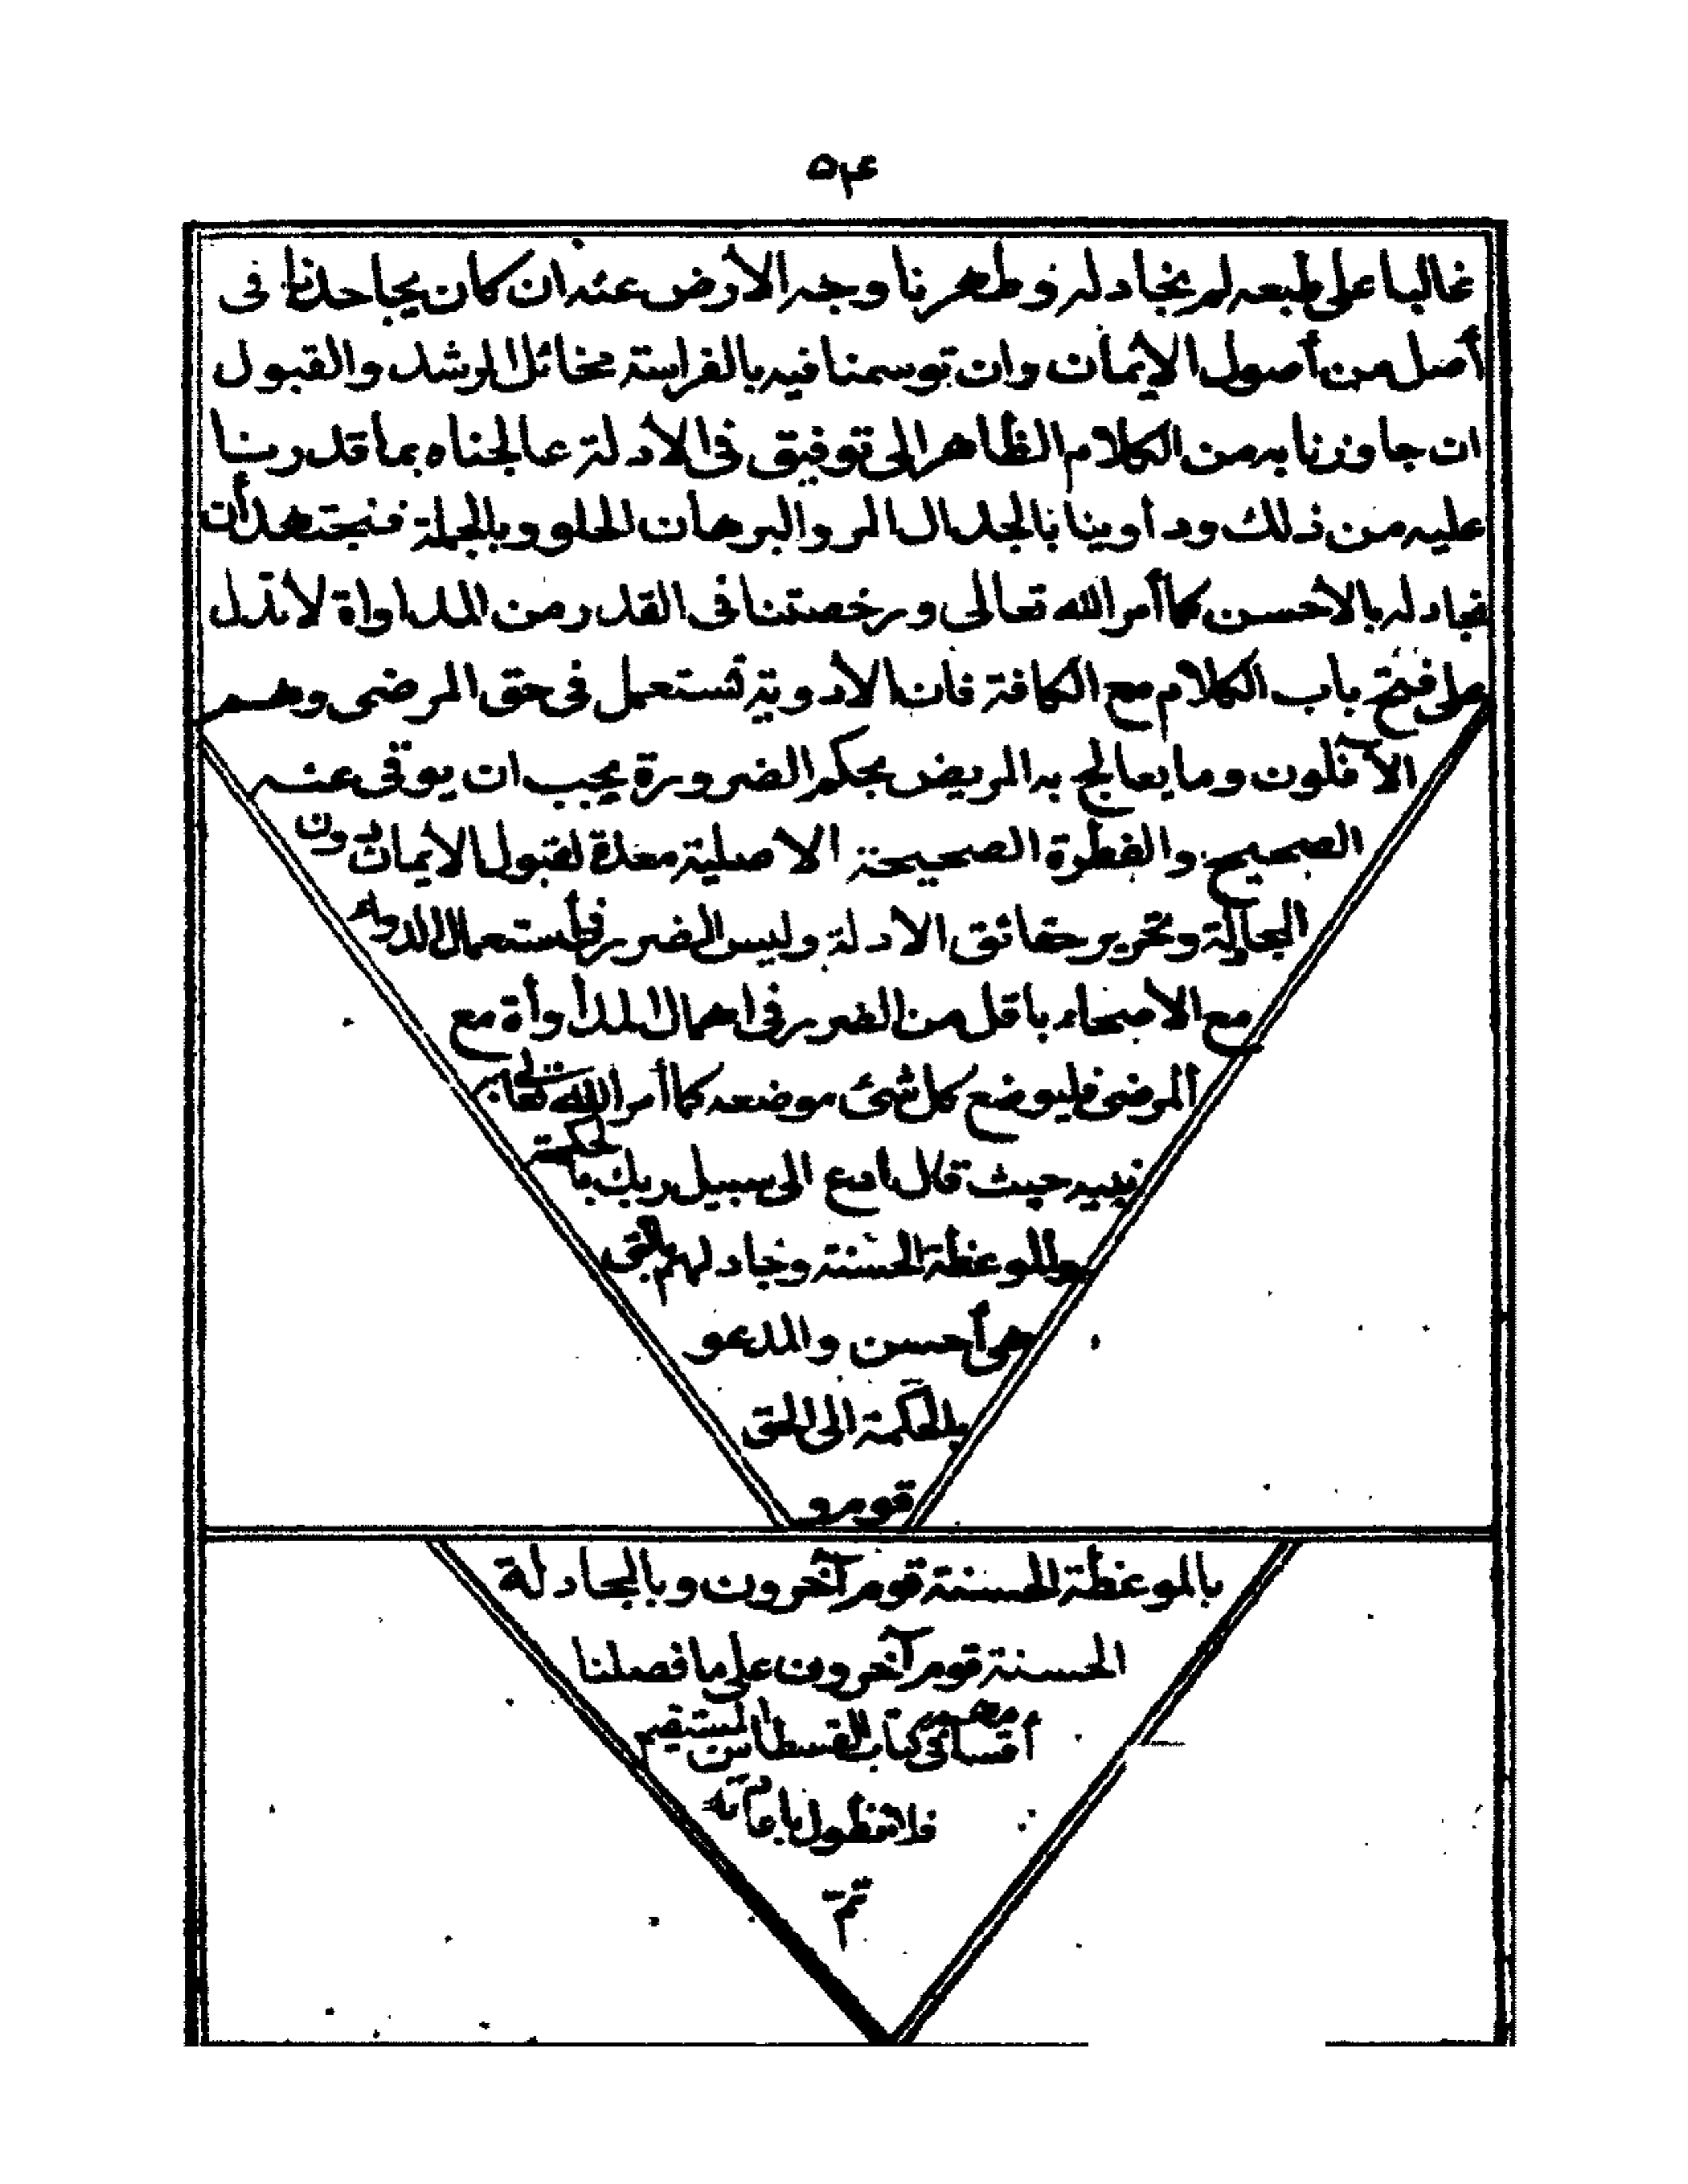 ٥٤
غالبا على طبعه لم نجادله وطهرنا وجه الأرض عنه ان كان يجاحدنا فى
أصل من أصول الأيمان وان توسمنا فيه بالفراسة مخائل الرشد والقبول
ان جاوزنا به من الكلام الظاهر الى توفيق فى الأدلة عالجناه بما قدرنا
عليه من ذلك وداوينا بالجدال المر والبرهان الحلو وبالجملة فنجتهد أن
نجادله بالاحسن كما أمر الله تعالى ورخصتنا فى القدر من المداواة لا تدل
على فتح باب الكلام مع الكافة فان الادوية تستعمل فى حق المرضى وهم
الآقلون وما يعالج به المريض بحكم الضرورة يجب ان يوقى عنه
الصحيح والفطرة الصحيحة الاصلية معدة لقبول الايمان دون
المجادلة وتحرير حقائق الادلة وليس الضرر فى استعمال الدواء
مع الاصحاء باقل من الضرر فى اهمال المداواة مع
المرضى فليوضع كل شئ موضعه كما أمر الله تعالى به
نبيه حيث قال ادع الى سبيل ربك بالحكمة
والموعظة الحسنة وجادلهم بالتى
هى أحسن والمدعو
بالحكمة الى الحق
قوم و
بالموعظة الحسنة قوم آخرون وبالمجادلة
الحسنة قوم آخرون على ما فصلنا
أقسامهم فى كتاب القسطاس المستقيم
فلا نطول باعادته
تم